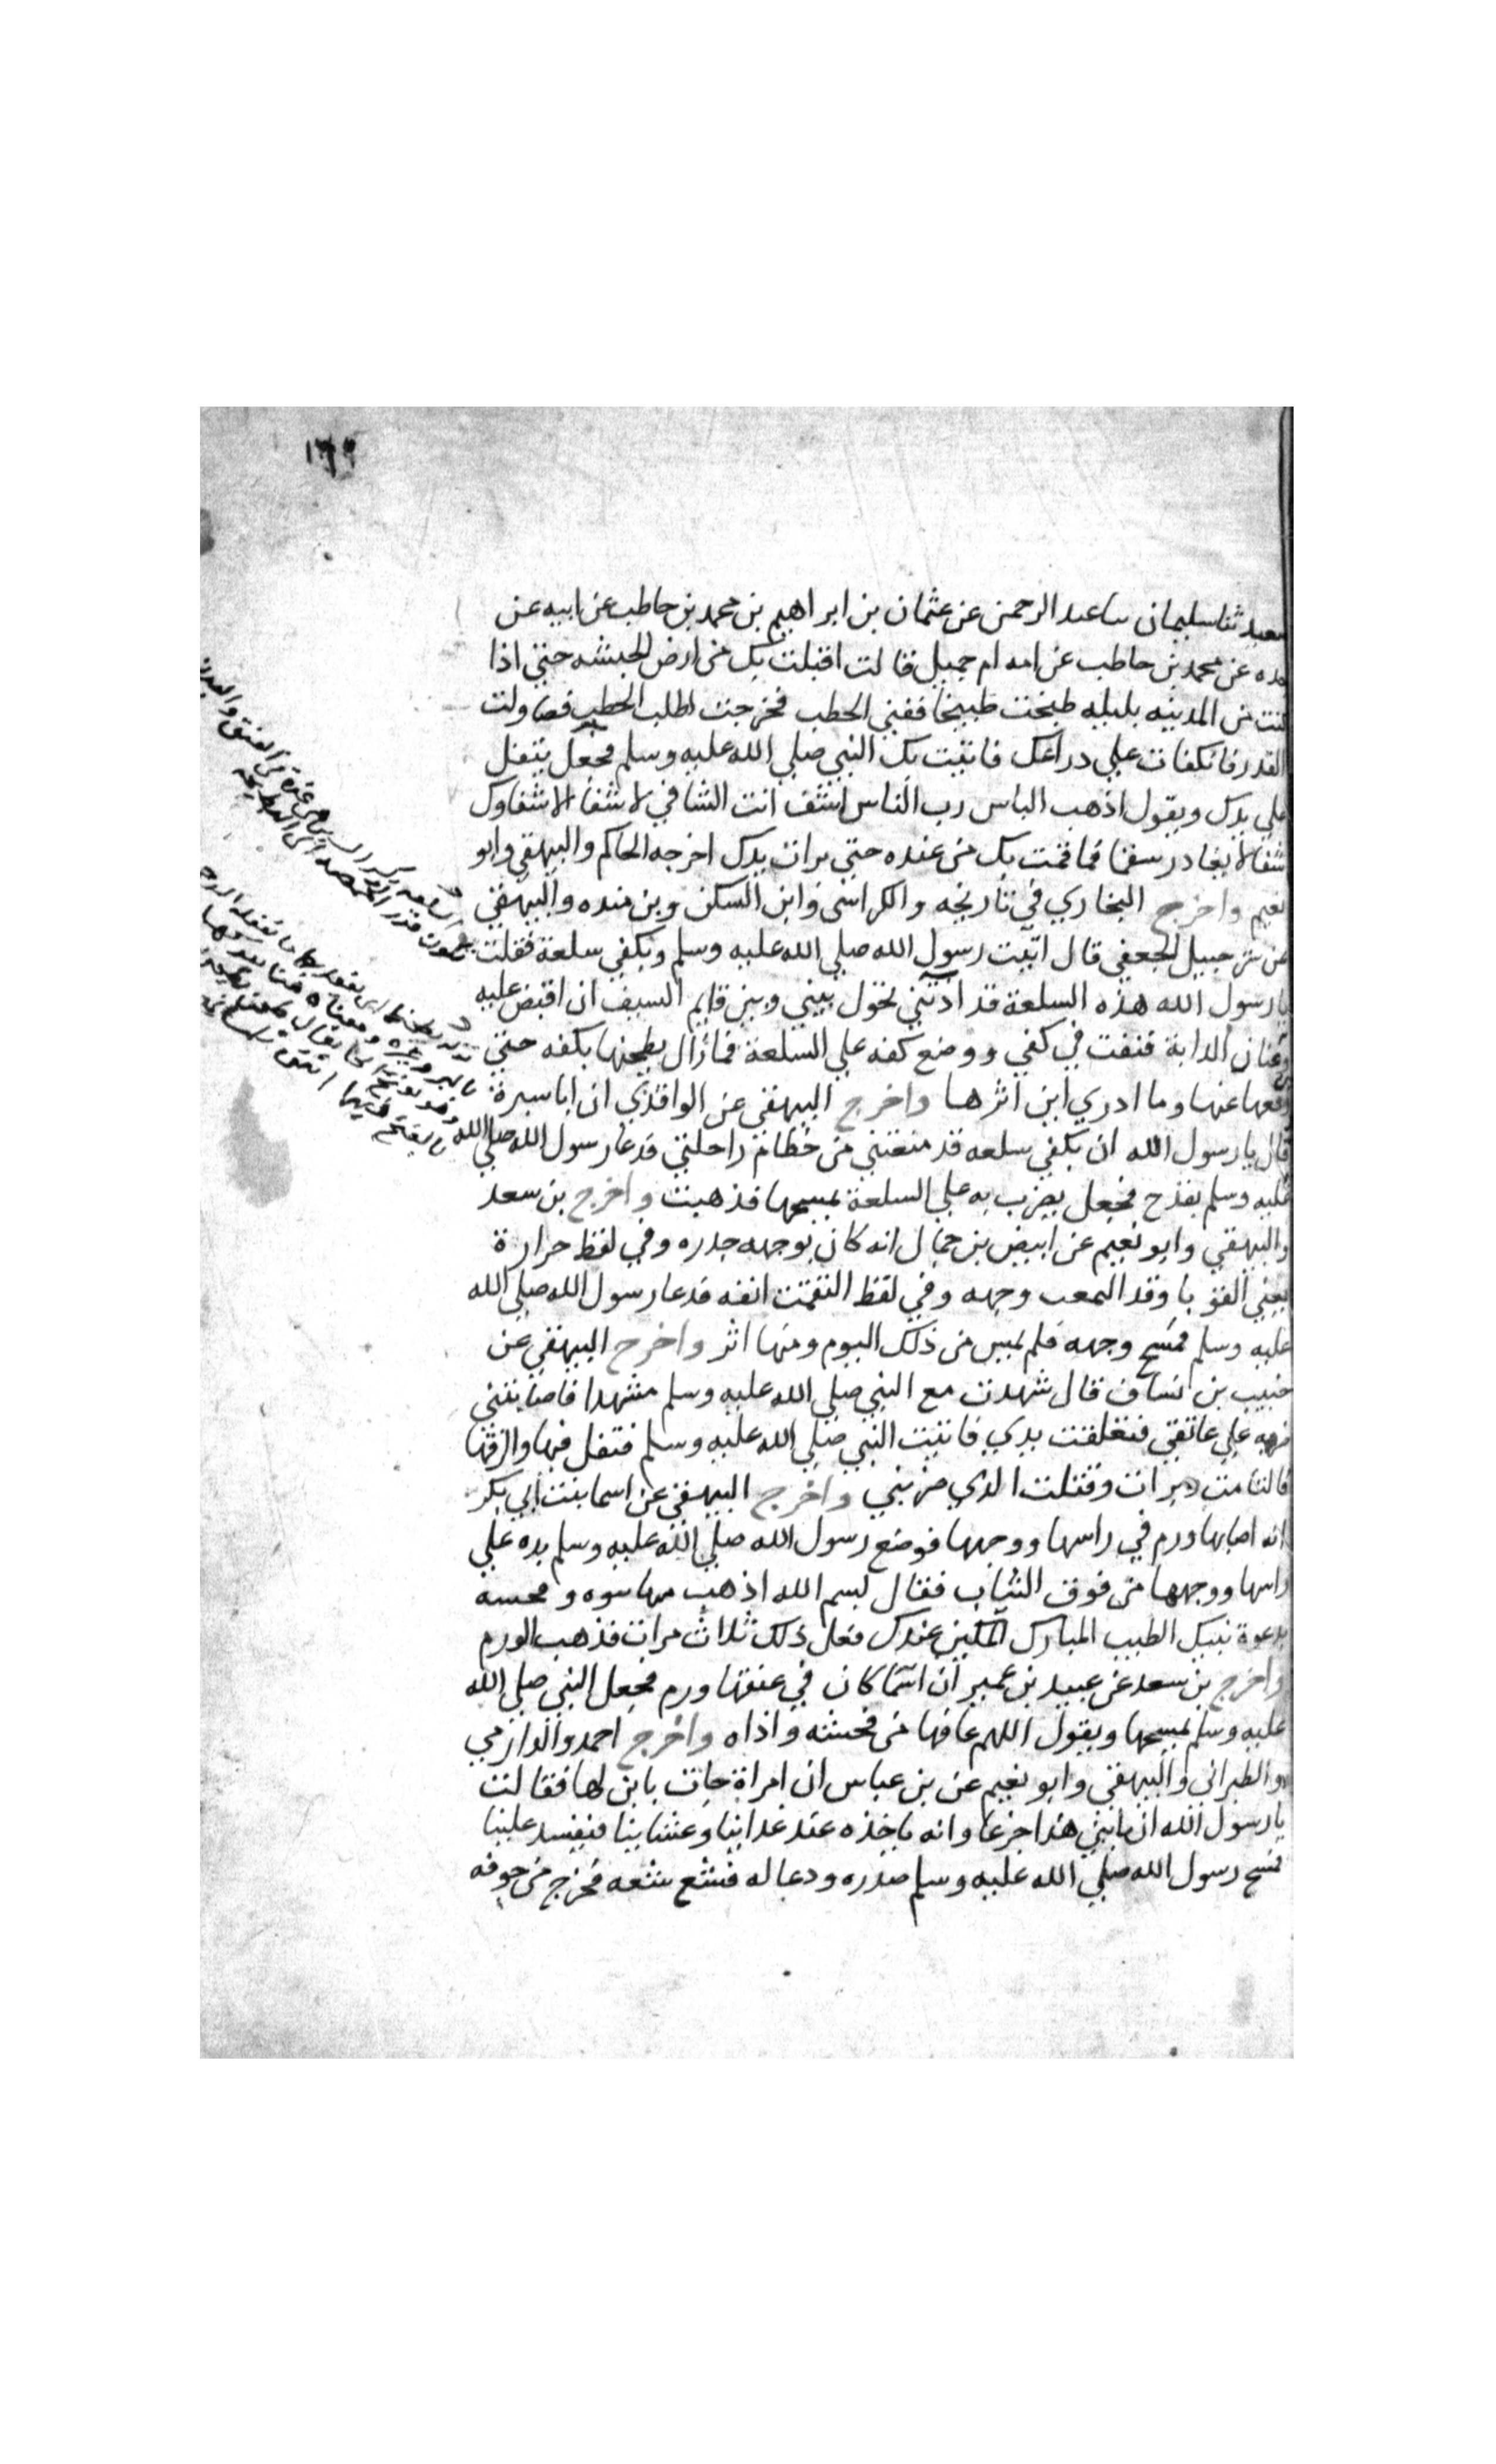 ١٦٩
سعيد ثنا سليمان ساعبد الرحمن عن عثمان بن ابراهيم بن محمد بن حاطب عن ابيه عن
جده عن محمد بن حاطب عن امه ام جميل قالت اقبلت بك من ارض الحبشه حتي اذا
كنت من المدينه بليله طبخت طبيخا ففني الحطب فخرجت اطلب الحطب فتناولت
القدر فانكفات علي دراعك فاتيت بك النبي صلي الله عليه وسلم فجعل يتفل
علي يدك ويقول اذهب الباس رب الناس اشف انت الشافي لا شفا الا شفاوك
شفا لا يغادر سقما فما قمت بك من عنده حتي برات يدك اخرجه الحاكم والبيهقي وابو
نعيم واخرج البخاري في تاريخه والكراسى وابن السكن وبن منده والبيهقي
عن شرحبيل الجعفي قال اتيت رسول الله صلي الله عليه وسلم وبكفي سلعة فقلت
يا رسول الله هذه السلعة قد آدتني تحول بيني وبين قايم السيف ان اقبض عليه
وعنان الدابة فنفث في كفي ووضع كفه علي السلعة فما زال يطحنها بكفه حتي
رفعها عنها وما ادري اين اثرها واخرج البيهقي عن الواقدي ان ابا سبرة
قال يا رسول الله ان بكفي سلعه قد منعتني من خطام راحلتي فدعا رسول الله صلي الله
عليه وسلم بقدح فجعل يضرب به علي السلعة يمسحها فذهبت واخرج بن سعد
والبيهقي وابو نعيم عن ابيض بن حمال انه كان بوجهه جدره وفي لفظ حرارة
يعني القوبا وقد المعب وجهه وفي لفظ التقمت انفه فدعا رسول الله صلي الله
عليه وسلم فمسح وجهه فلم يمس من ذلك اليوم ومنها اثر واخرج البيهقي عن
خبيب بن اساف قال شهدت مع النبي صلي الله عليه وسلم مشهدا فاصابتني
ضربه علي عاتقي فتعلقت يدي فاتيت النبي صلي الله عليه وسلم فتفل فيها والزقها
فالتامت وبرات وقتلت الدي ضربني واخرج البيهقي عن اسما بنت ابي بكر
انه اصابها ورم في راسها ووجهها فوضع رسول الله صلي الله عليه وسلم يده علي
راسها ووجهها من فوق الثياب فقال بسم الله اذهب عنها سوه وفحشه
بدعوة نبيك الطيب المبارك المكين عندك فعل ذلك ثلاث مرات فذهب الورم
واخرج بن سعد عن عبيد بن عمير ان اسما كان في عنقها ورم فجعل النبي صلي الله
عليه وسلم يمسحها ويقول اللهم عافها من فحشه واذاه واخرج احمد والدارمي
والطبراني والبيهقي وابو نعيم عن بن عباس ان امراة جات بابن لها فقالت
يا رسول الله ان بابني هذا جزعا وانه ياخذه عند غداينا وعشاينا فيفسد علينا
فمسح رسول الله صلي الله عليه وسلم صدره ودعا له فثع ثعه فخرج من جوفه